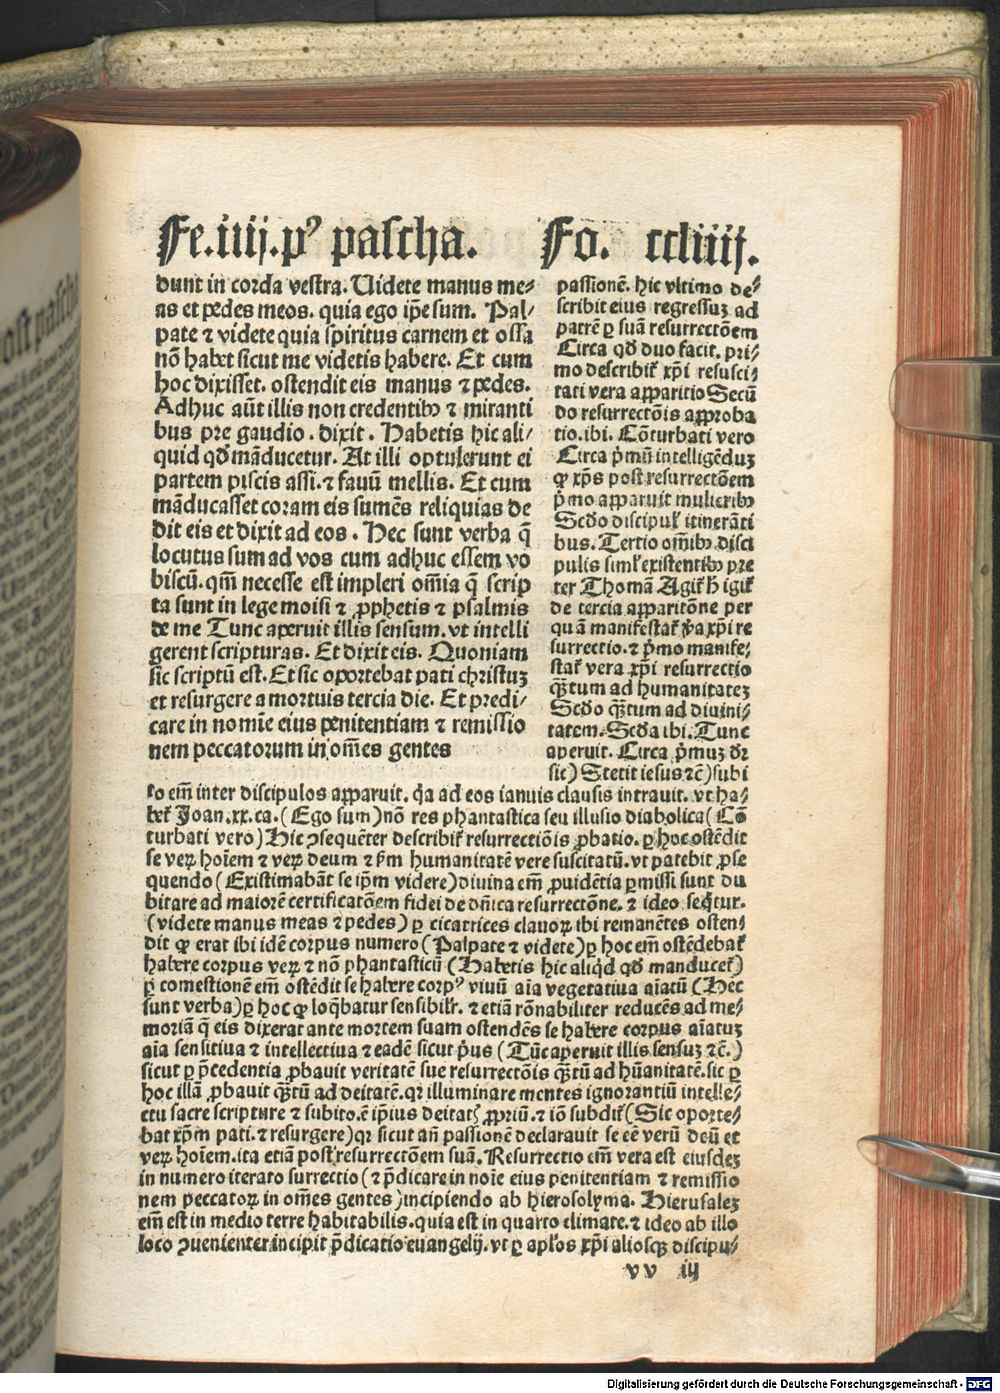 Fe.iiij.pꝰ pascha. Fo. ccliiij.
dunt in corda vestra. Uidete manus me⸗
as et pedes meos. quia ego ip̄e sum. Pal⸗
pate ⁊ videte quia spiritus carnem et ossa
nō habet sicut me videtis habere. Et cum
hoc dixisset. ostendit eis manus ⁊ pedes.
Adhuc aūt illis non credentibꝰ ⁊ miranti
bus pre gaudio. dixit. Habetis hic ali⸗
quid qđ māducetur. At illi optulerunt ei
partem piscis assi.⁊ fauū mellis. Et cum
māducasset coram eis sumēs reliquias de
dit eis et dixit ad eos. Hec sunt verba q̄
locutus sum ad vos cum adhuc essem vo
biscū. qm̄ necesse est impleri om̄ia q̄ scrip
ta sunt in lege moisi ⁊ ꝓphetis ⁊ psalmis
de me Tunc aperuit illis sensum. vt intelli
gerent scripturas. Et dixit eis. Quoniam
sic scriptū est. Et sic oportebat pati christuꝫ
et resurgere a mortuis tercia die. Et predi⸗
care in nomīe eius penitentiam ⁊ remissio
nem peccatorum in om̄es gentes
passionē. hic vltimo de⸗
scribit eius regressuꝫ ad
patrē ꝑ suā resurrectōem
Circa qđ duo facit. pri⸗
mo describit̄ xp̄i resusci⸗
tati vera apparitio Secū
do resurrectōis approba
tio. ibi. Cōturbati vero
Circa p̄mū intelligēduꝫ
ꝙ xp̄s post resurrectōem
p̄mo apparuit mulieribꝰ
Scđo discipul̄ itinerāti
bus. Tertio om̄ibꝰ disci
pulis siml̄ existentibꝰ pre
ter Thomā Agit̄ h̄ igit̄
de tercia apparitōne per
quā manifestat̄ v̄a xp̄i re
surrectio.⁊ p̄mo manife⸗
stat̄ vera xp̄i resurrectio
qꝫ̄tum ad humanitateꝫ
Scđo qꝫ̄tum ad diuini⸗
tatem. Scđa ibi. Tunc
aperuit. Circa p̄muꝫ dr̄
sic) Stetit iesus ⁊c̄) subi
to em̄ inter discipulos apparuit. q̄a ad eos ianuis clausis intrauit. vt ha⸗
bet̄ Joan.xx.ca.(Ego sum) nō res phantastica seu illusio diabolica (Cō
turbati vero) Hic ꝯsequēter describit̄ resurrectiōis ꝓbatio. ꝑ hoc ostēdit
se veꝝ hoīem ⁊ veꝝ deum ⁊ p̄m humanitatē vere suscitatū. vt patebit ꝓse
quendo (Existimabāt se ip̄m videre) diuina em̄ ꝓuidētia ꝑmissi sunt du
bitare ad maiorē certificatōem fidei de dn̄ica resurrectōne. ⁊ ideo seq̄tur.
(videte manus meas ⁊ pedes) ꝑ cicatrices clauoꝝ ibi remanētes osten⸗
dit ꝙ erat ibi idē corpus numero (Palpate ⁊ videte) ꝑ hoc em̄ ostēdebat̄
habere corpus veꝝ ⁊ nō phantasticū (Habetis hic aliq̄d qđ manducet̄)
ꝑ comestionē em̄ ostēdit se habere corpꝰ viuū aīa vegetatiua aīatū (Hec
sunt verba) ꝑ hoc ꝙ loq̄batur sensibilr̄. ⁊ etiā rōnabiliter reducēs ad me⸗
moriā q̄ eis dixerat ante mortem suam ostendēs se habere corpus aīatuꝫ
aīa sensitiua ⁊ intellectiua ⁊ eadē sicut p̄us (Tūc aperuit illis sensuꝫ ⁊c̄.)
sicut ꝑ p̄cedentia ꝓbauit veritatē sue resurrectōis qꝫ̄tū ad hūanitatē. sic ꝑ
hoc illā ꝓbauit qꝫ̄tū ad deitatē. qꝛ illuminare mentes ignorantiū intelle⸗
ctu sacre scripture ⁊ subito.ē ip̄ius deitat̄ ꝓpriū.⁊ iō subdit̄ (Sic oporte⸗
bat xp̄m pati.⁊ resurgere) qꝛ sicut an̄ passionē declarauit se eē verū deū et
veꝝ hoīem. ita etiā post resurrectōem suā. Resurrectio em̄ vera est eiusdeꝫ
in numero iterato surrectio (⁊ p̄dicare in noīe eius penitentiam ⁊ remissio
nem peccatoꝝ in om̄es gentes) incipiendo ab hierosolyma. Hierusaleꝫ
em̄ est in medio terre habitabilis. quia est in quarto climate.⁊ ideo ab illo
loco ꝯuenienter incipit p̄dicatio euangelij. vt ꝑ apl̄os xp̄i aliosqꝫ discipu⸗
vv iij
Digitalisierung gefördert durch die Deutsche Forschungsgemeinschaft - DFG